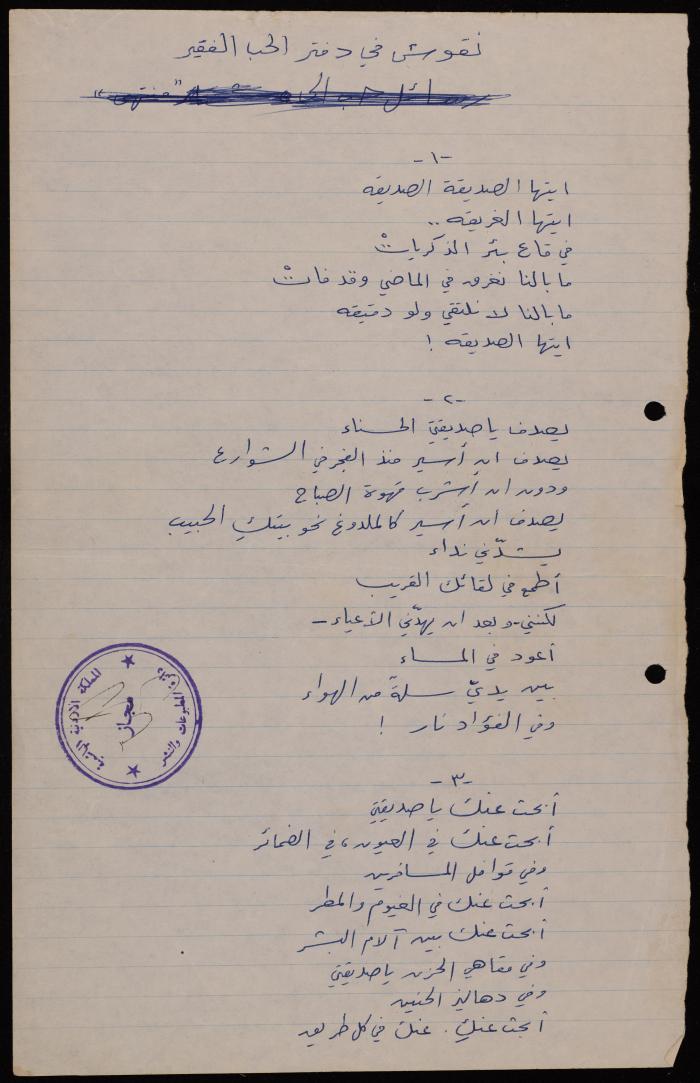 نقوش في دفتر الحب الفقير
رسائل حب الى
-١-
ايتها الصديقة الصديقه
ايتها الغريقه ..
في قاع بئر الذكرياتْ ..
ما بالنا نغرق في الماضي وقد فاتْ ..
ما بالنا لا نلتقي ولو دقيقه
ايتها الصديقه !
-٢-
يصدف يا صديقتي الحسناء
يصدف ان أسير منذ الفجر في الشوارع
ودون ان أشرب قهوة الصباح
يصدف ان أسير كالملدوغ نحو بيتكِ الحبيب
يشدّني نداء
أطمع في لقائك القريب
لكنني - وبعد ان يهدّني الأعياء -
أعود في المساء
بين يديّ سلةً من الهواء
وفي الفؤاد نار !
المملكة الاردنية الهاشمية
مجاز
المطبوعات والنشر
-٣-
أبحث عنك يا صديقتي
أبحث عنك في العيون ، في الضمائر
وفي قوافل المسافرين
أبحث عنك في الغيوم والمطر
أبحث عنك بين آلام البشر
وفي مقاهي الحزن يا صديقتي
وفي دهاليز الحنين
أبحث عنكِ . عنك في كل طريق